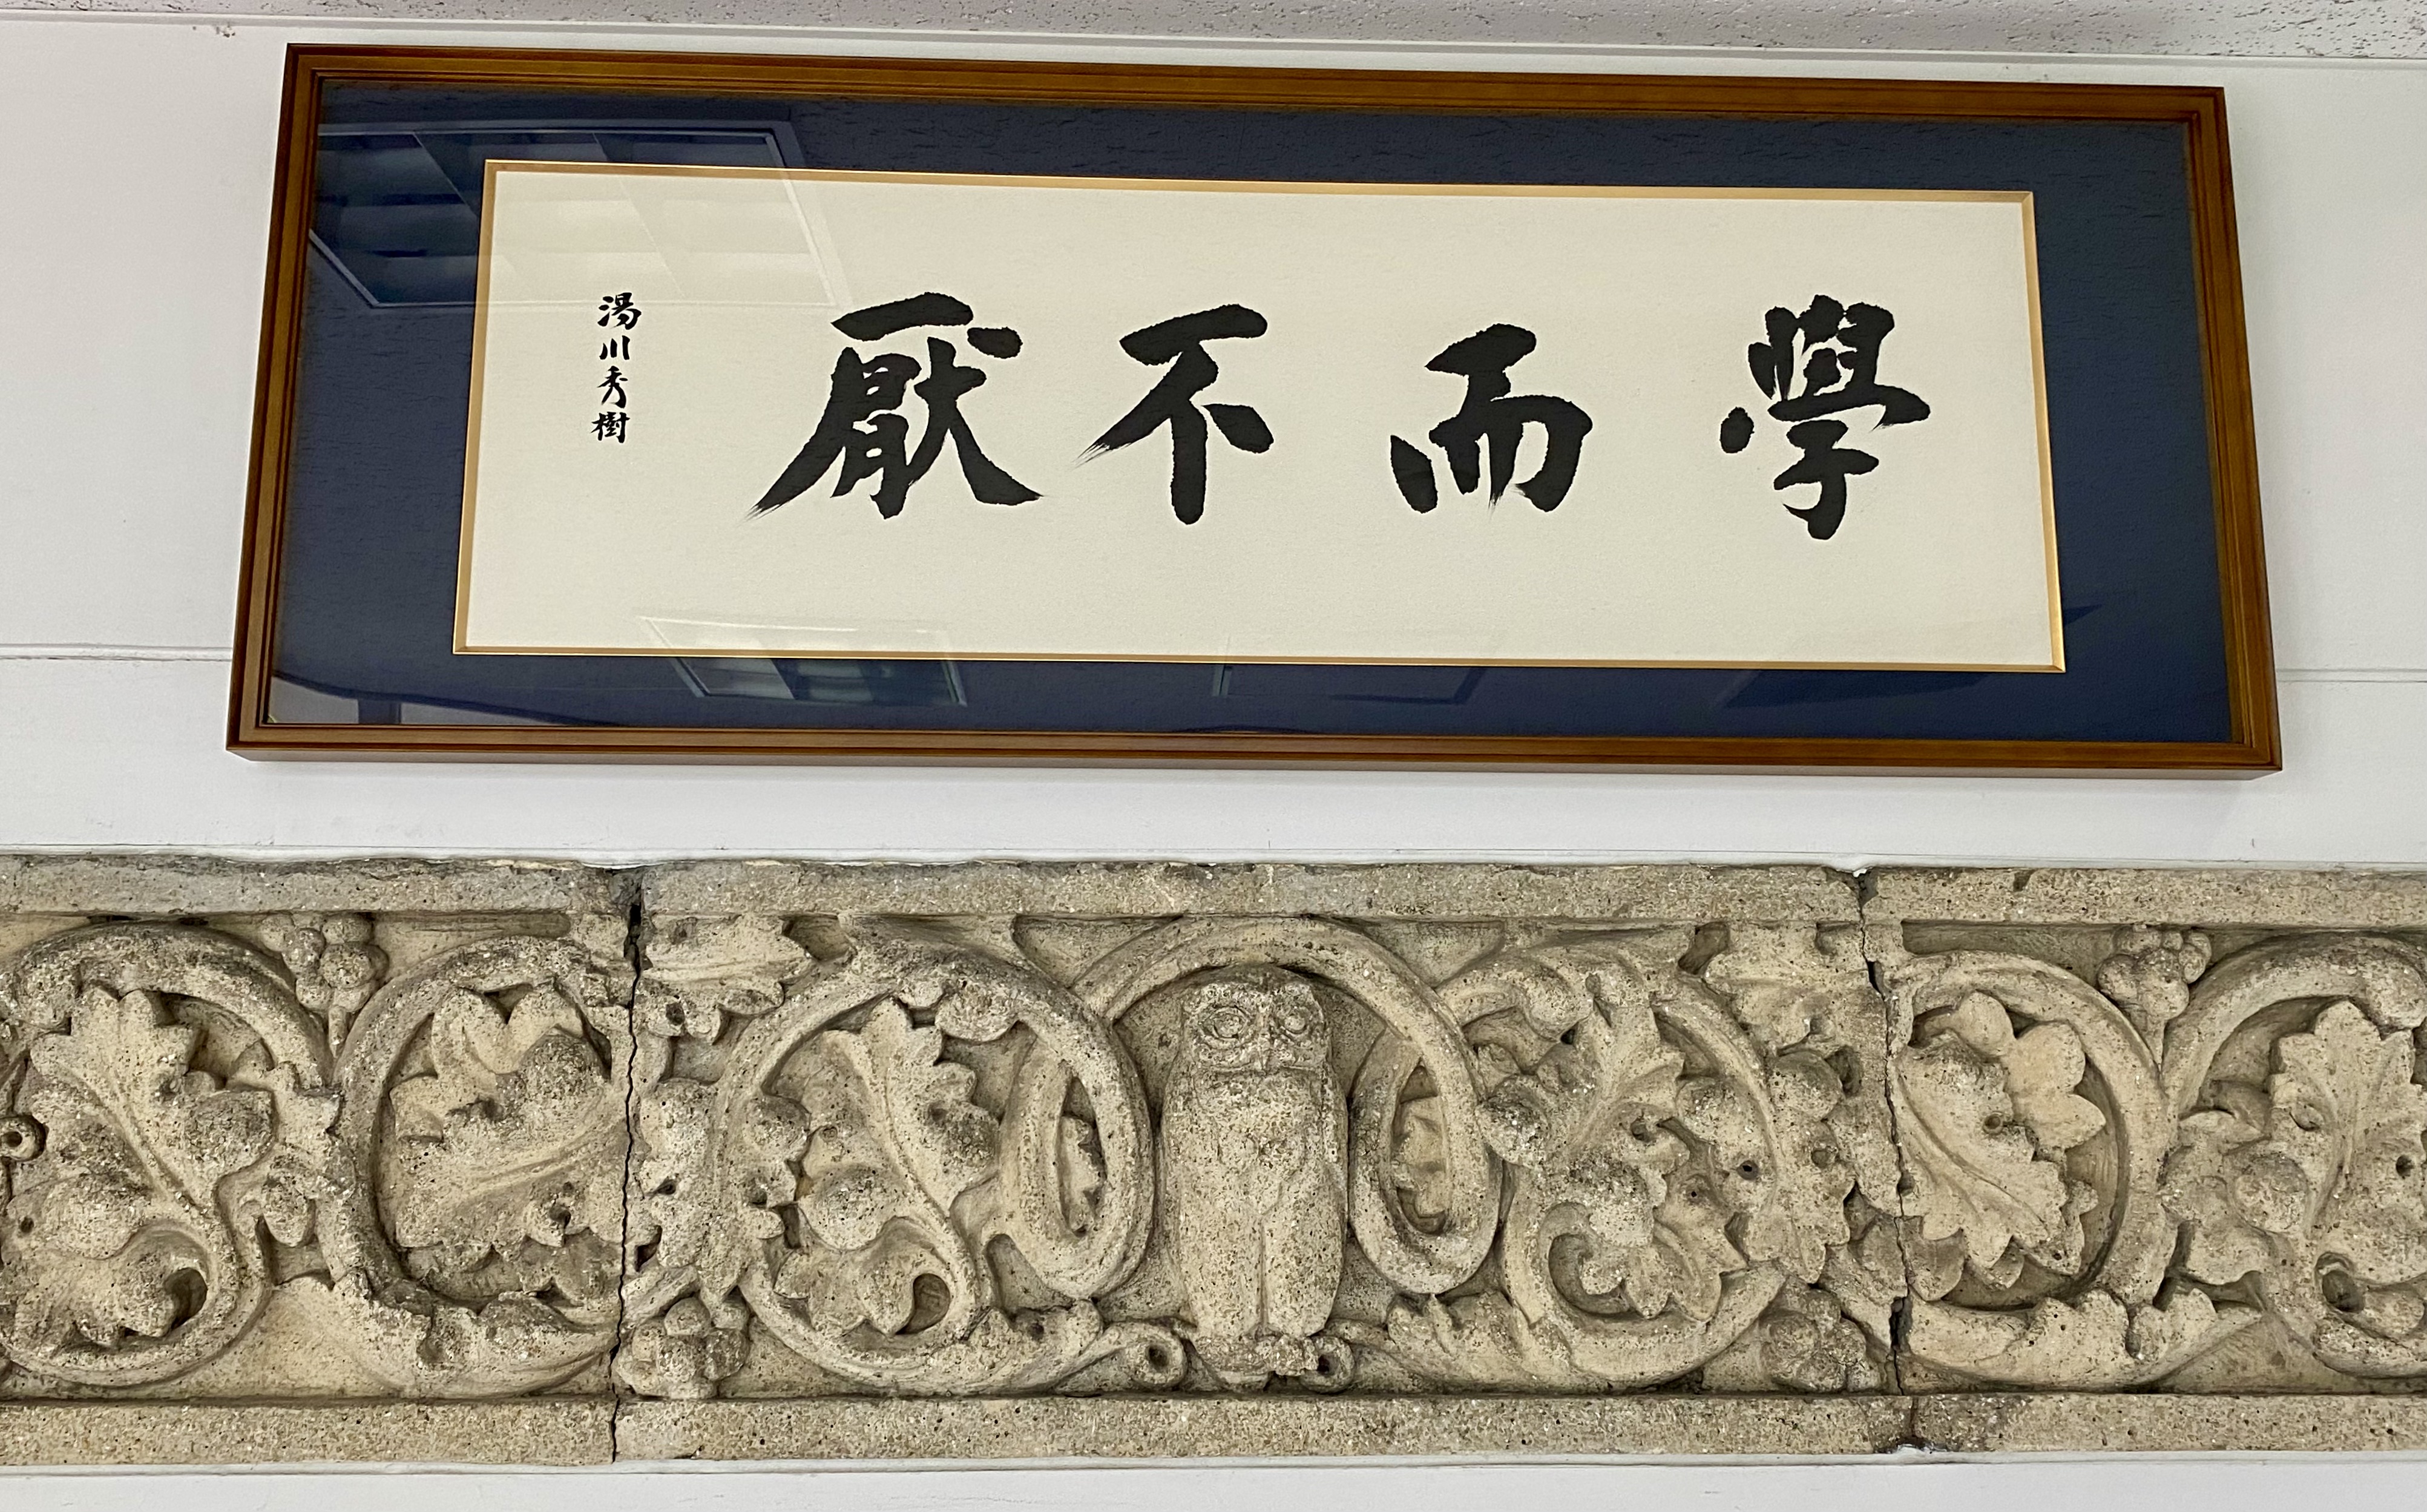 學而不厭
湯川秀樹